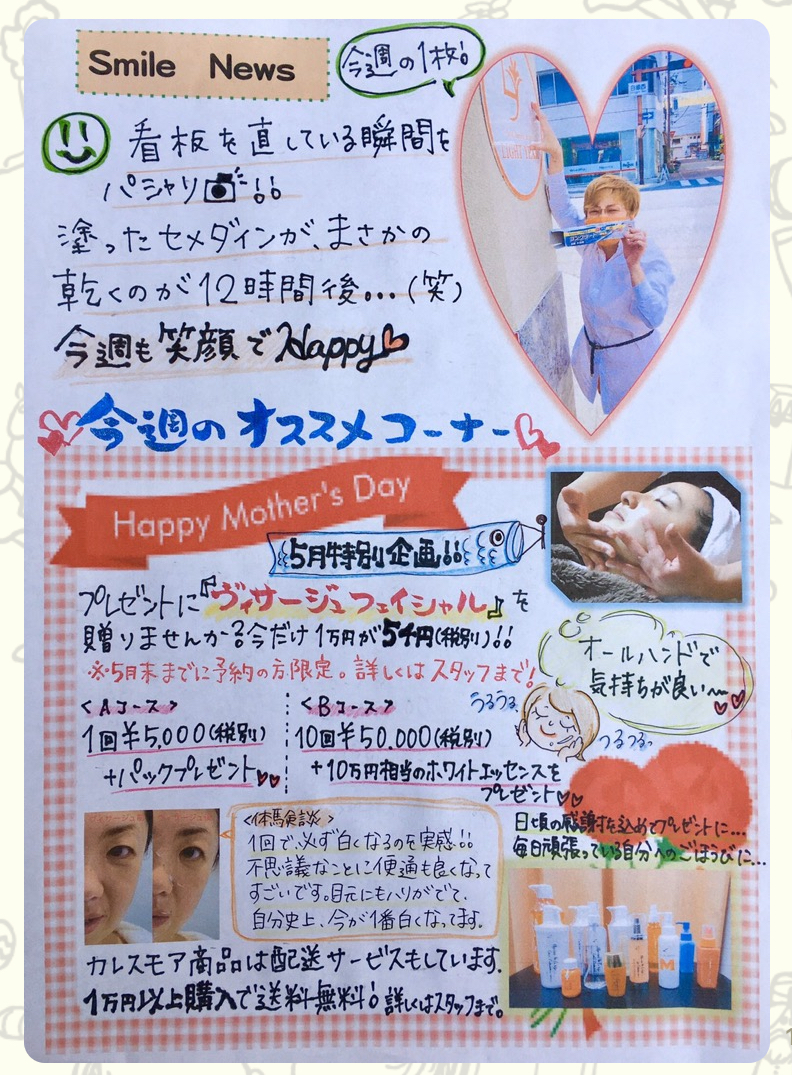 Smile News
今週の1枚!
看板を直している瞬間を
パシャリ!!
塗ったセメダインが、まさかの
乾くのが12時間後...(笑)
今週も笑顔でHappy
今週のオススメコーナー
Happy Mother's Day
5月特別企画!!
プレゼントに『ヴィサージュフェイシャル』を
贈りませんか?今だけ1万円が5千円(税別)!!
※5月末までに予約の方限定。詳しくはスタッフまで!
オールハンドで
気持ちが良い〜
うるうる
つるつるっ
<Aコース>
1回¥5,000(税別)
+パックプレゼント
<Bコース>
10回¥50.000(税別)
+10万円相当のホワイトエッセンスを
プレゼント
日頃の感謝を込めてプレゼントに...
毎日頑張っている自分へのごほうびに...
<体験談>
1回で、必ず白くなるのを実感!!
不思議なことに便通も良くなって
すごいです。目元にもハリがでて、
自分史上、今が1番白くなってます。
カレスモア商品は配送サービスもしています。
1万円以上購入で送料無料!詳しくはスタッフまで。